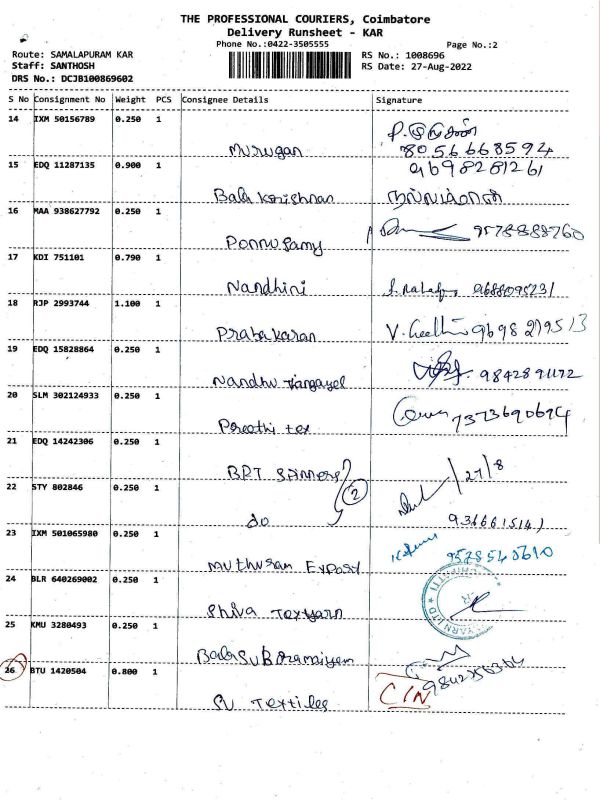 THE PROFESSIONAL COURIERS, Coimbatore
Delivery Runsheet - KAR
Phone No.:0422-3505555 Page No.:2
Route: SAMALAPURAM KAR RS No.: 1008696
Staff: SANTHOSH RS Date: 27-Aug-2022
DRS No.: DCJB100869602
S No Consignment No Weight PCS Consignee Details Signature
14 IXM 50156789 0.250 1
Murugan 8056668594
15 EDQ 11287135 0.900 1 9698281261
Balakrishnan
16 MAA 938627792 0.250 1
Ponnusamy 9578888760
17 KDI 751101 0.790 1
Nandhini
18 RJP 2993744 1.100 1
Prabakaran
19 EDQ 15828864 0.250 1
Nandhu 9842891172
20 SLM 302124933 0.250 1
Preethi tex 7373690694
21 EDQ 14242306 0.250 1
BPT 27/8
22 STY 802846 0.250 1 2
do
23 IXM 501065980 0.250 1
Muthusam Export
24 BLR 640269002 0.250 1
Shiva Texyarn
25 KMU 3280493 0.250 1
Balasubramaniyem
26 BTU 1420504 0.800 1
Textiles